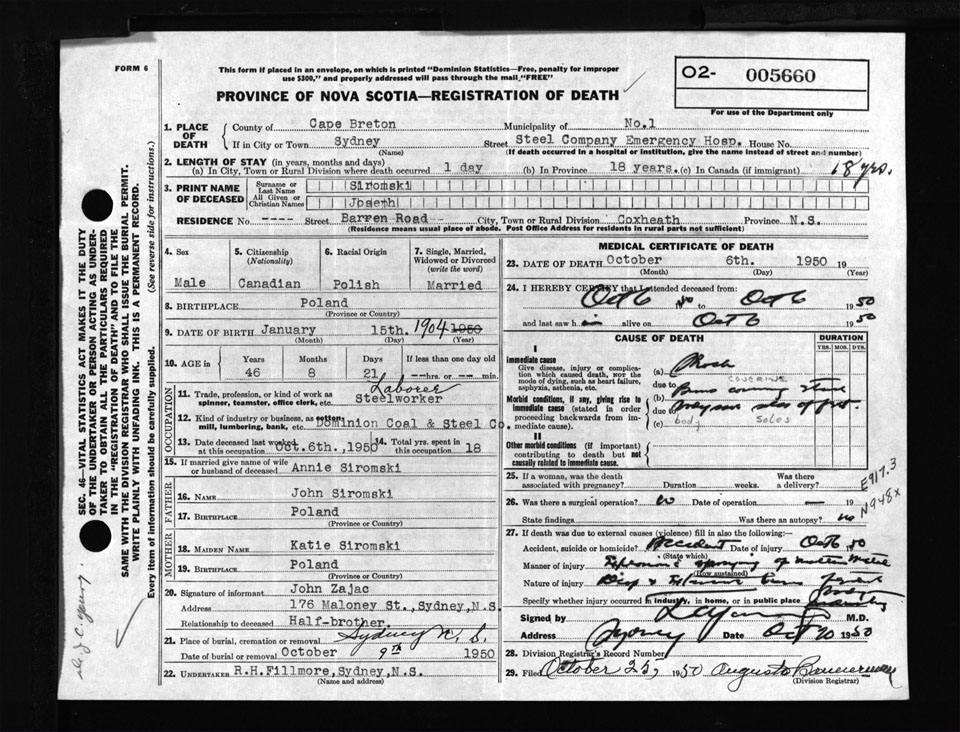 FORM 6
This form if placed in an envelope, on which is printed "Dominion Statistics—Free, penalty for improper
use $300," and properly addressed will pass through the mail "FREE"
PROVINCE OF NOVA SCOTIA—REGISTRATION OF DEATH
O2- 005660
For use of the Department only
1. PLACE OF DEATH
County of Cape Breton Municipality of No.1
If in City or Town Sydney Street Steel Company Emergency Hosp. House No.
(Name) (If death occurred in a hospital or institution, give the name instead of street and number)
2. LENGTH OF STAY (in years, months and days)
(a) In City, Town or Rural Division where death occurred 1 day (b) In Province 18 years. (c) In Canada (if immigrant) 18 yrs.
3. PRINT NAME OF DECEASED
Surname or Last Name Siromski
All Given or Christian Names Joseph
RESIDENCE No. ---- Street Barren Road -- City, Town or Rural Division Coxheath Province N.S.
(Residence means usual place of abode. Post Office Address for residents in rural parts not sufficient)
4. Sex
Male
5. Citizenship (Nationality)
Canadian
6. Racial Origin
Polish
7. Single, Married, Widowed or Divorced (write the word)
Married
8. BIRTHPLACE Poland
(Province or Country)
9. DATE OF BIRTH January 15th. 1904 1950
(Month) (Day) (Year)
10. AGE in
Years Months Days If less than one day old
46 8 21 --hrs. or -- min.
OCCUPATION
11. Trade, profession, or kind of work as spinner, teamster, office clerk, etc. Laborer Steelworker
12. Kind of industry or business, as cotten mill, lumbering, bank, etc. Dominion Coal & Steel Co.
13. Date deceased last worked at this occupation Oct.6th.,1950
14. Total yrs. spent in this occupation 18
15. If married give name of wife or husband of deceased Annie Siromski
FATHER
16. NAME John Siromski
17. BIRTHPLACE Poland
(Province or Country)
MOTHER
18. MAIDEN NAME Katie Siromski
19. BIRTHPLACE Poland
(Province or Country)
20. Signature of informant John Zajac
Address 176 Maloney St.,Sydney,N.S.
Relationship to deceased Half-brother.
21. Place of burial, cremation or removal Sydney N.S.
Date of burial or removal October 9th 1950
22. UNDERTAKER R.H.Fillmore,Sydney,N.S.
(Name and address)
MEDICAL CERTIFICATE OF DEATH
23. DATE OF DEATH October 6th. 1950 19
(Month) (Day) (Year)
24. I HEREBY CERTIFY that I attended deceased from:
Oct 6 50 to Oct 6 1950
and last saw h im alive on Oct 6 1950
CAUSE OF DEATH
DURATION
YRS. MOS. DYS.
I
Immediate cause
Give disease, injury or complication which caused death, NOT the mode of dying, such as heart failure, asphyxia, asthenia, etc.
(a) Shock
due to
Morbid conditions, if any, giving rise to immediate cause (stated in order proceeding backwards from immediate cause).
(b) Burns covering
due to
(c) body
II
Other morbid conditions (if important) contributing to death but not causally related to immediate cause.
25. If a woman, was the death associated with pregnancy? Duration weeks. Was there a delivery?
E917.3
N948x
26. Was there a surgical operation? no Date of operation — 19
State findings Was there an autopsy? no
27. If death was due to external causes (violence) fill in also the following:—
Accident, suicide or homicide? Accident Date of injury Oct 6 1950
(State which)
Manner of injury Explosion & spraying of molten metal
(How sustained)
Nature of injury Deep & Extensive burns
Specify whether injury occurred in industry, in home, or in public place
Signed by M.D.
Address Sydney Date Oct 20 1950
28. Division Registrar's Record Number
29. Filed October 25, 1950
(Division Registrar)
SEC. 46—VITAL STATISTICS ACT MAKES IT THE DUTY
OF THE UNDERTAKER OR PERSON ACTING AS UNDERTAKER
TO OBTAIN ALL THE PARTICULARS REQUIRED
IN THE "REGISTRATION OF DEATH" AND TO FILE THE
SAME WITH THE DIVISION REGISTRAR WHO SHALL ISSUE THE BURIAL PERMIT.
WRITE PLAINLY WITH UNFADING INK. THIS IS A PERMANENT RECORD.
Every item of information should be carefully supplied. (See reverse side for instructions.)